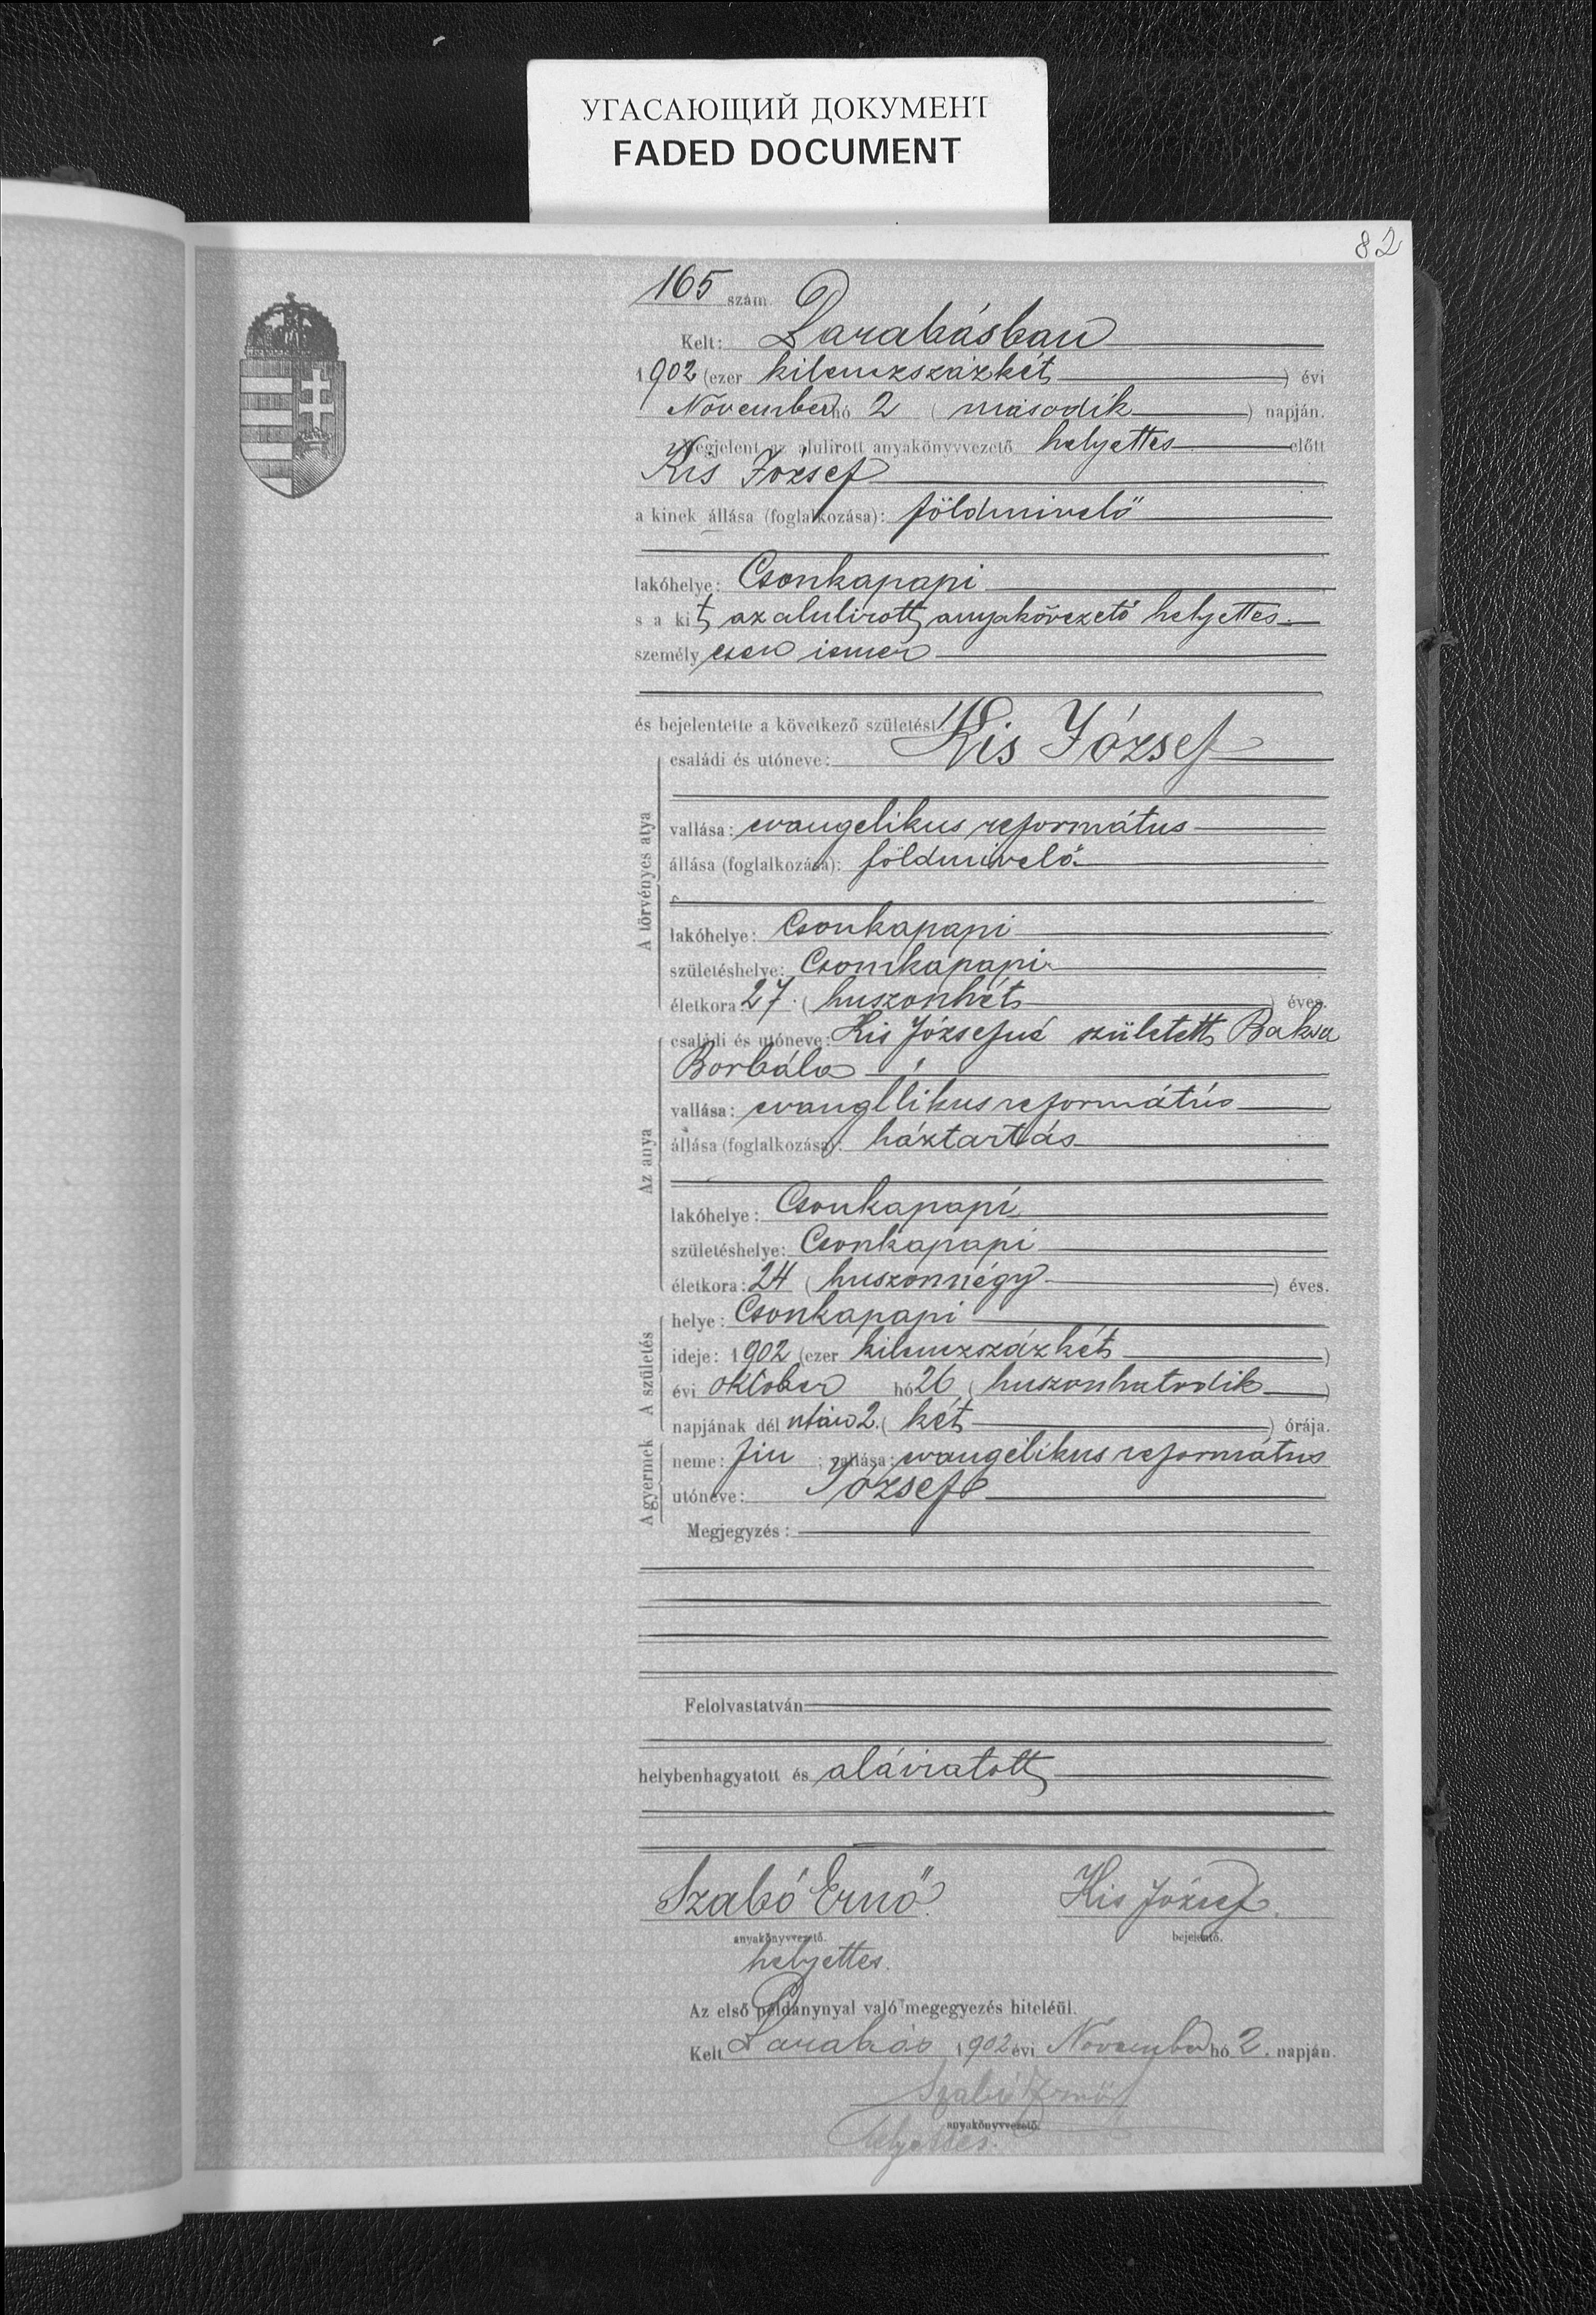 УГАСАЮЩИЙ ДОКУМЕНТ
FADED DOCUMENT
82
165 szám.
Kelt: Darabásban
1902 (ezer kilenczszázkét) évi
November hó 2 (második) napján.
Megjelent az alulirott anyakönyvvezető helyettes előtt
Kis József
a kinek állása (foglalkozása): földmivelő
lakóhelye: Csonkapapi
s a kit az alulirott anyakövezető helyettes
személyesen ismer
és bejelentette a következő születést:
A törvényes atya
családi és utóneve: Kis József
vallása: evangelikus református
állása (foglalkozása): földmivelő
lakóhelye: Csonkapapi
születéshelye: Csonkapapi
életkora: 27. (huszonhét) éves.
Az anya
családi és utóneve: Kis Józsefné született Baksa
Borbála
vallása: evangélikus református
állása (foglalkozása): háztartás
lakóhelye: Csonkapapi
születéshelye: Csonkapapi
életkora: 24 (huszonnégy) éves.
A születés
helye: Csonkapapi
ideje: 1902 (ezer kilenczszázkét)
évi október hó 26 (huszonhatodik)
napjának dél után 2. (két) órája.
A gyermek
neme: fiu; vallása: evangélikus református
utóneve: József
Megjegyzés:
Felolvastatván
helybenhagyatott és aláiratott
Szabó Ernő Kis József.
anyakönyvvezető. bejelentő.
helyettes.
Az első példánynyal való megegyezés hiteléül.
Kelt Darabás 1902 évi November hó 2. napján.
Szabó Ernő
anyakönyvvezető.
helyettes.